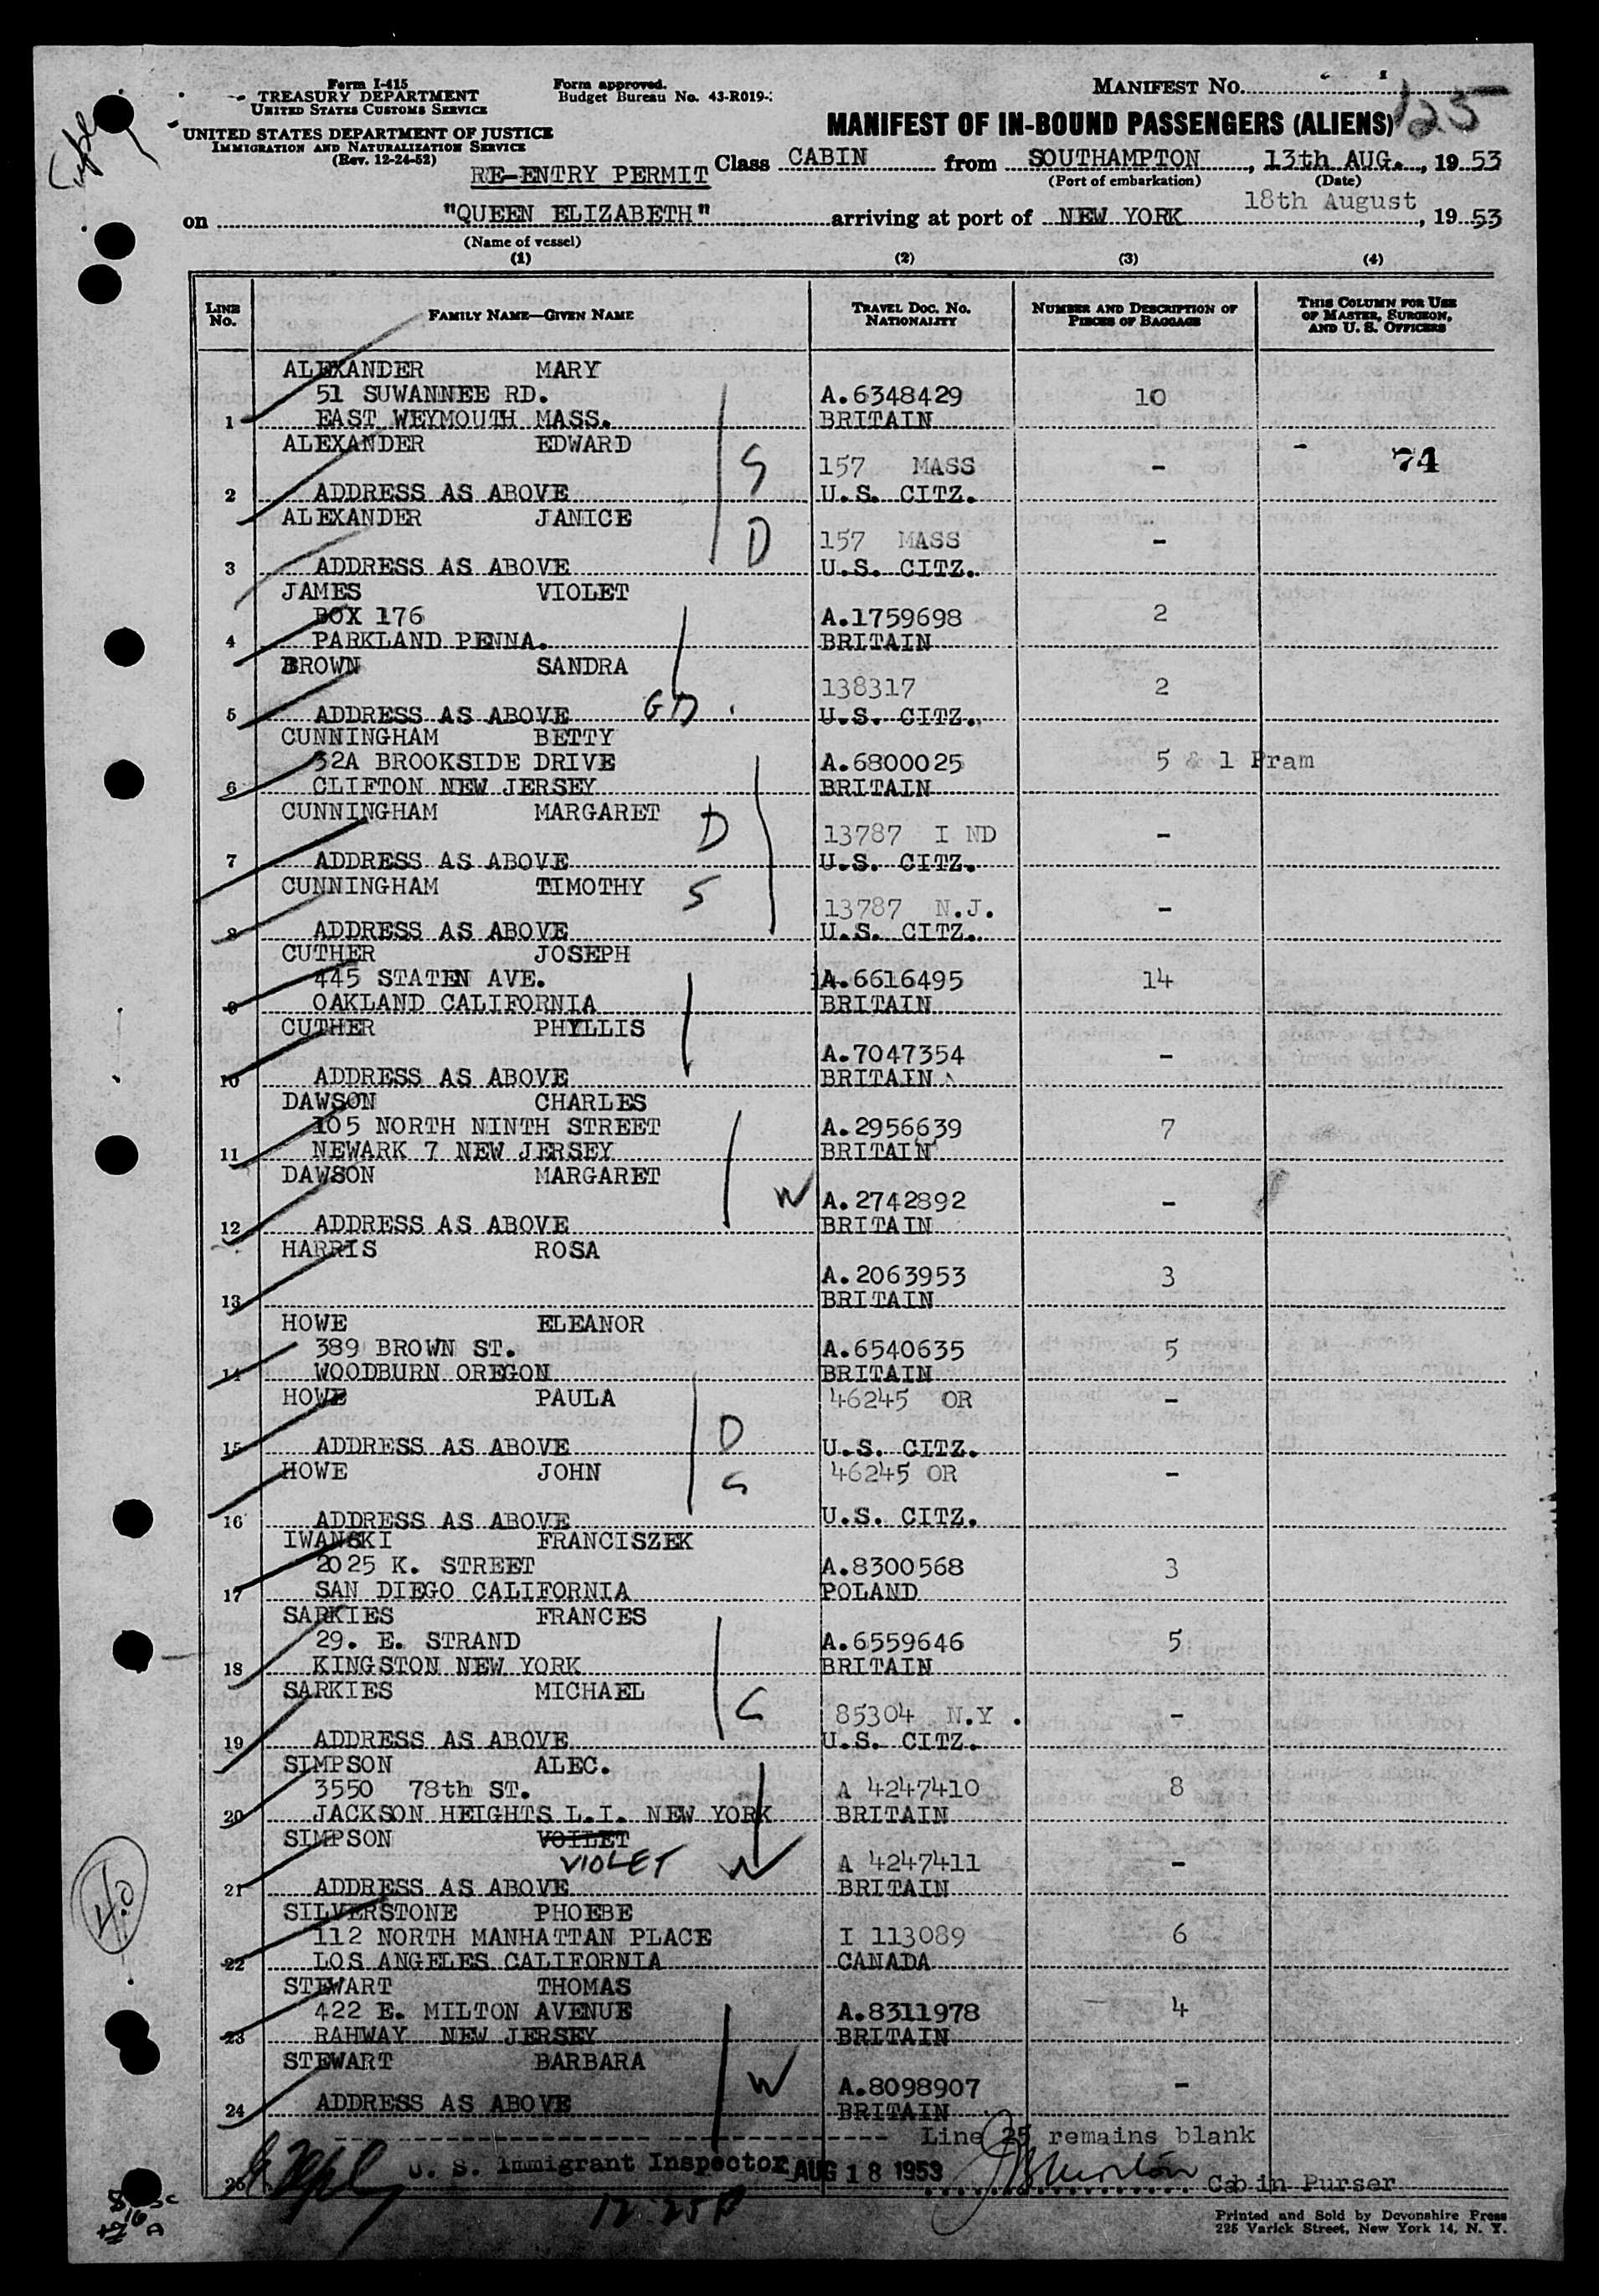 Form I-415
TREASURY DEPARTMENT
UNITED STATES CUSTOMS SERVICE
UNITED STATES DEPARTMENT OF JUSTICE
IMMIGRATION AND NATURALIZATION SERVICE
(Rev. 12-24-52)
Form approved.
Budget Bureau No. 43-R019-
MANIFEST NO.
125
MANIFEST OF IN-BOUND PASSENGERS (ALIENS)
RE-ENTRY PERMIT Class CABIN from SOUTHAMPTON, 13th AUG., 19 53
(Port of embarkation) (Date)
on "QUEEN ELIZABETH" arriving at port of NEW YORK 18th August, 19 53
(Name of vessel)
(1) (2) (3) (4)
LINE NO. FAMILY NAME—GIVEN NAME TRAVEL DOC. NO. NATIONALITY NUMBER AND DESCRIPTION OF PIECES OF BAGGAGE THIS COLUMN FOR USE OF MASTER, SURGEON, AND U. S. OFFICERS
ALEXANDER MARY
51 SUWANNEE RD. A.6348429 10
1 EAST WEYMOUTH MASS. BRITAIN
ALEXANDER EDWARD
S 157 MASS - 74
2 ADDRESS AS ABOVE U.S. CITZ.
ALEXANDER JANICE
D 157 MASS -
3 ADDRESS AS ABOVE U.S. CITZ.
JAMES VIOLET
BOX 176 A.1759698 2
4 PARKLAND PENNA. BRITAIN
BROWN SANDRA
138317 2
5 ADDRESS AS ABOVE GD. U.S. CITZ.
CUNNINGHAM BETTY
32A BROOKSIDE DRIVE A.6800025 5 & 1 Pram
6 CLIFTON NEW JERSEY BRITAIN
CUNNINGHAM MARGARET
D 13787 I ND -
7 ADDRESS AS ABOVE U.S. CITZ.
CUNNINGHAM TIMOTHY S
13787 N.J. -
8 ADDRESS AS ABOVE U.S. CITZ.
CUTHER JOSEPH
445 STATEN AVE. A.6616495 14
9 OAKLAND CALIFORNIA BRITAIN
CUTHER PHYLLIS
A.7047354 -
10 ADDRESS AS ABOVE BRITAIN
DAWSON CHARLES
105 NORTH NINTH STREET A.2956639 7
11 NEWARK 7 NEW JERSEY BRITAIN
DAWSON MARGARET
W A.2742892 -
12 ADDRESS AS ABOVE BRITAIN
HARRIS ROSA
A.2063953 3
13 BRITAIN
HOWE ELEANOR
389 BROWN ST. A.6540635 5
14 WOODBURN OREGON BRITAIN
HOWE PAULA 46245 OR -
D
15 ADDRESS AS ABOVE U.S. CITZ.
HOWE JOHN 46245 OR -
S
16 ADDRESS AS ABOVE U.S. CITZ.
IWANSKI FRANCISZEK
2025 K. STREET A.8300568 3
17 SAN DIEGO CALIFORNIA POLAND
SARKIES FRANCES
29. E. STRAND A.6559646 5
18 KINGSTON NEW YORK BRITAIN
SARKIES MICHAEL
S 85304 N.Y. -
19 ADDRESS AS ABOVE U.S. CITZ.
SIMPSON ALEC.
3550 78th ST. A 4247410 8
20 JACKSON HEIGHTS L.I. NEW YORK BRITAIN
SIMPSON VOILET
VIOLET W A 4247411 -
21 ADDRESS AS ABOVE BRITAIN
SILVERSTONE PHOEBE
112 NORTH MANHATTAN PLACE I 113089 6
22 LOS ANGELES CALIFORNIA CANADA
STEWART THOMAS
422 E. MILTON AVENUE A.8311978 4
23 RAHWAY NEW JERSEY BRITAIN
STEWART BARBARA
W A.8098907 -
24 ADDRESS AS ABOVE BRITAIN
Line 25 remains blank
25 U. S. Immigrant Inspector AUG 18 1953 Cabin Purser
12:25P
Printed and Sold by Devonshire Press
225 Varick Street, New York 14, N. Y.